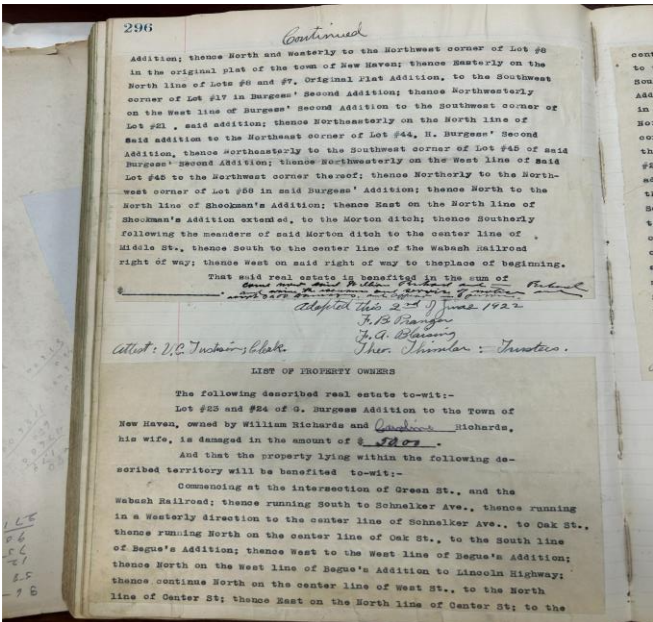 296
Continued
Addition; thence North and Westerly to the Northwest corner of Lot #8
in the original plat of the town of New Haven; thence Easterly on the
North line of Lots #8 and #7, Original Plat Addition, to the Southwest
corner of Lot #17 in Burgess' Second Addition; thence Northwesterly
on the West line of Burgess' Second Addition to the Southwest corner of
Lot #21 , said addition; thence Northeasterly on the North line of
Said addition to the Northeast corner of Lot #44, H. Burgess' Second
Addition, thence Northeasterly to the Southwest corner of Lot #45 of said
Burgess' Second Addition; thence Northwesterly on the West line of Said
Lot #45 to the Northwest corner thereof; thence Northerly to the North-
west corner of Lot #58 in said Burgess' Addition; thence North to the
North line of Shookman's Addition; thence East on the North line of
Shookman's Addition extended, to the Morton ditch; thence Southerly
following the meanders of said Morton ditch to the center line of
Middle St., thence South to the center line of the Wabash Railroad
right of way; thence West on said right of way to theplace of beginning.
That said real estate is benefited in the sum of
$ come now said William Richard and Richard
and waive the issuance and service of notice and
Adopted this 2nd of June 1922
F. B. Pranger
F. A. Blaising
Attest: V. C. Clerk. Theo. Thimlar : Trustees.
LIST OF PROPERTY OWNERS
The following described real estate to-wit:-
Lot #23 and #24 of G. Burgess Addition to the Town of
New Haven, owned by William Richards and Caroline Richards,
his wife, is damaged in the amount of $ 50.00 .
And that the property lying within the following de-
scribed territory will be benefited to-wit:-
Commencing at the intersection of Green St., and the
Wabash Railroad; thence running South to Schnelker Ave., thence running
in a Westerly direction to the center line of Schnelker Ave., to Oak St.,
thence running North on the center line of Oak St., to the South line
of Begue's Addition; thence West to the West line of Begue's Addition;
thence North on the West line of Begue's Addition to Lincoln Highway;
thence continue North on the center line of West St., to the North
line of Center St; thence East on the North line of Center St; to the